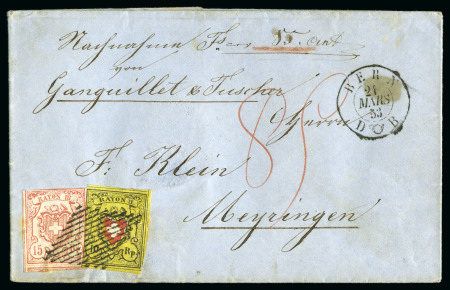 Nachnahme
von
Ganguillet & Tuscher
Herrn
Fr. Klein
Meyringen
BERN
21
MARS
53
RAYON III
15
RAYON II
10 Rp
85